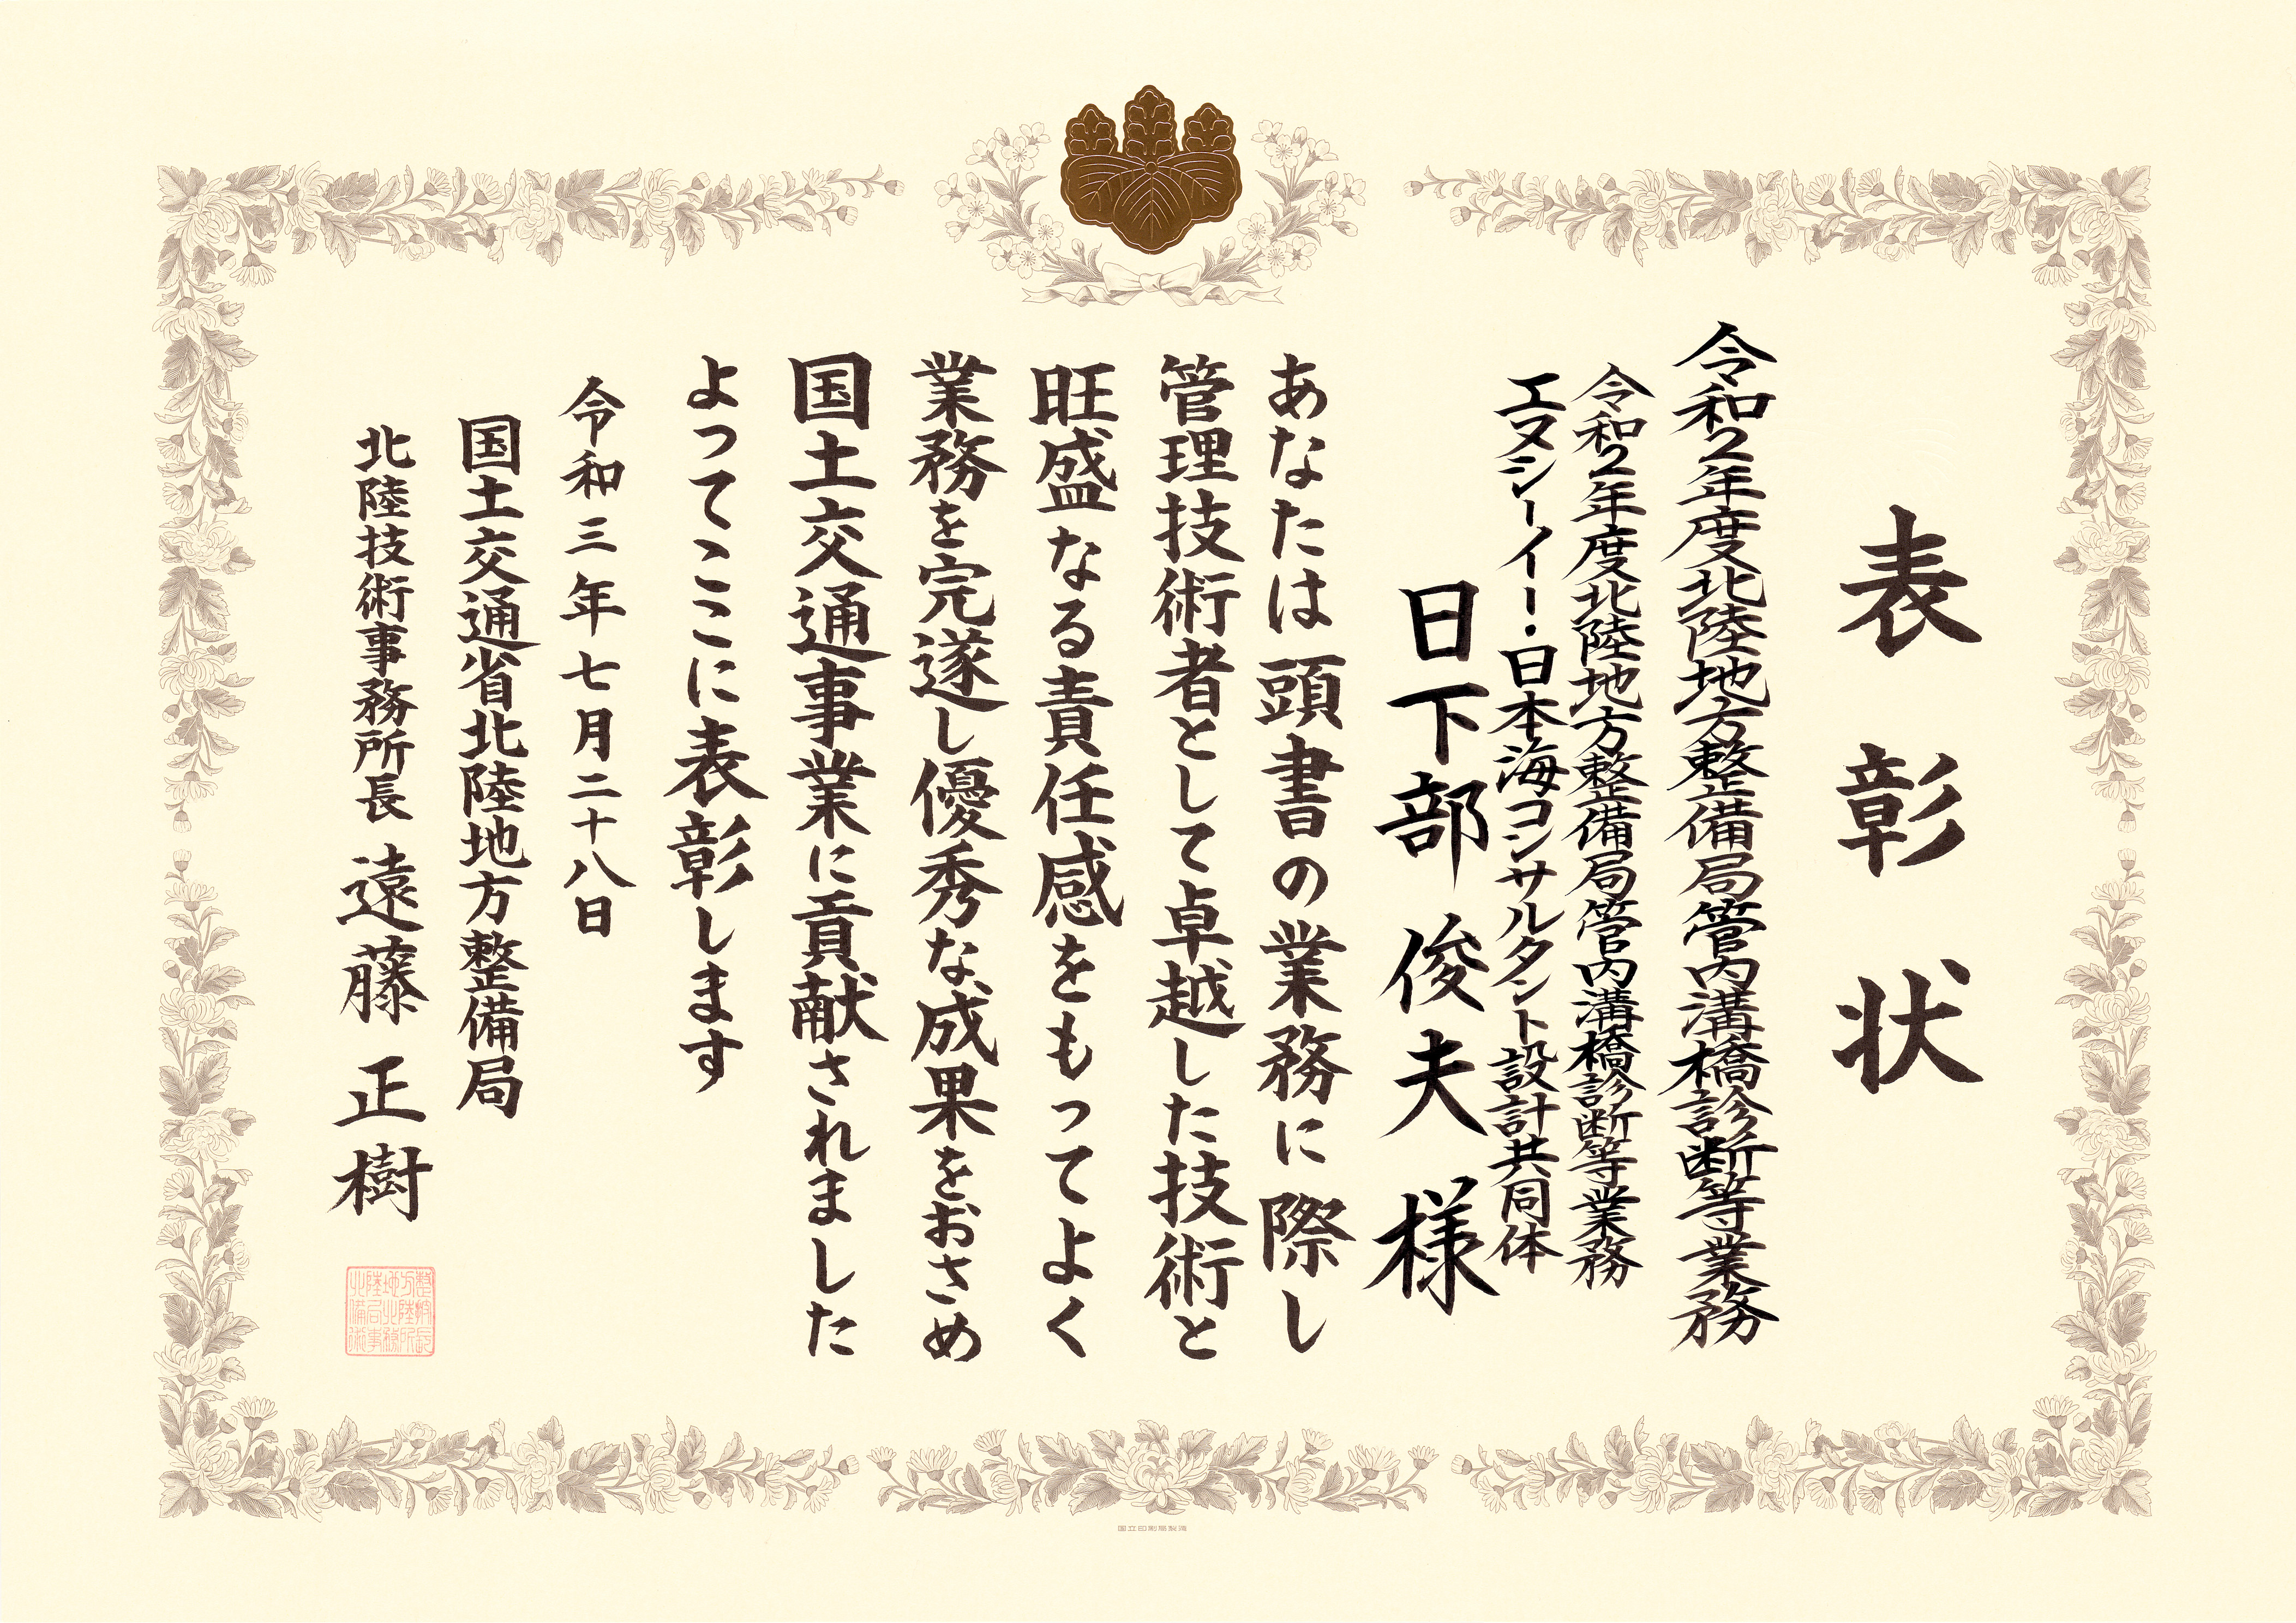 表彰状
令和2年度北陸地方整備局管内溝橋診断等業務
令和2年度北陸地方整備局管内溝橋診断等業務
エヌシーイー・日本海コンサルタント設計共同体
日下部俊夫様
あなたは頭書の業務に際し
管理技術者として卓越した技術と
旺盛なる責任感をもってよく
業務を完遂し優秀な成果をおさめ
国土交通事業に貢献されました
よってここに表彰します
令和三年七月二十八日
国土交通省北陸地方整備局
北陸技術事務所長 遠藤正樹
国立印刷局製造